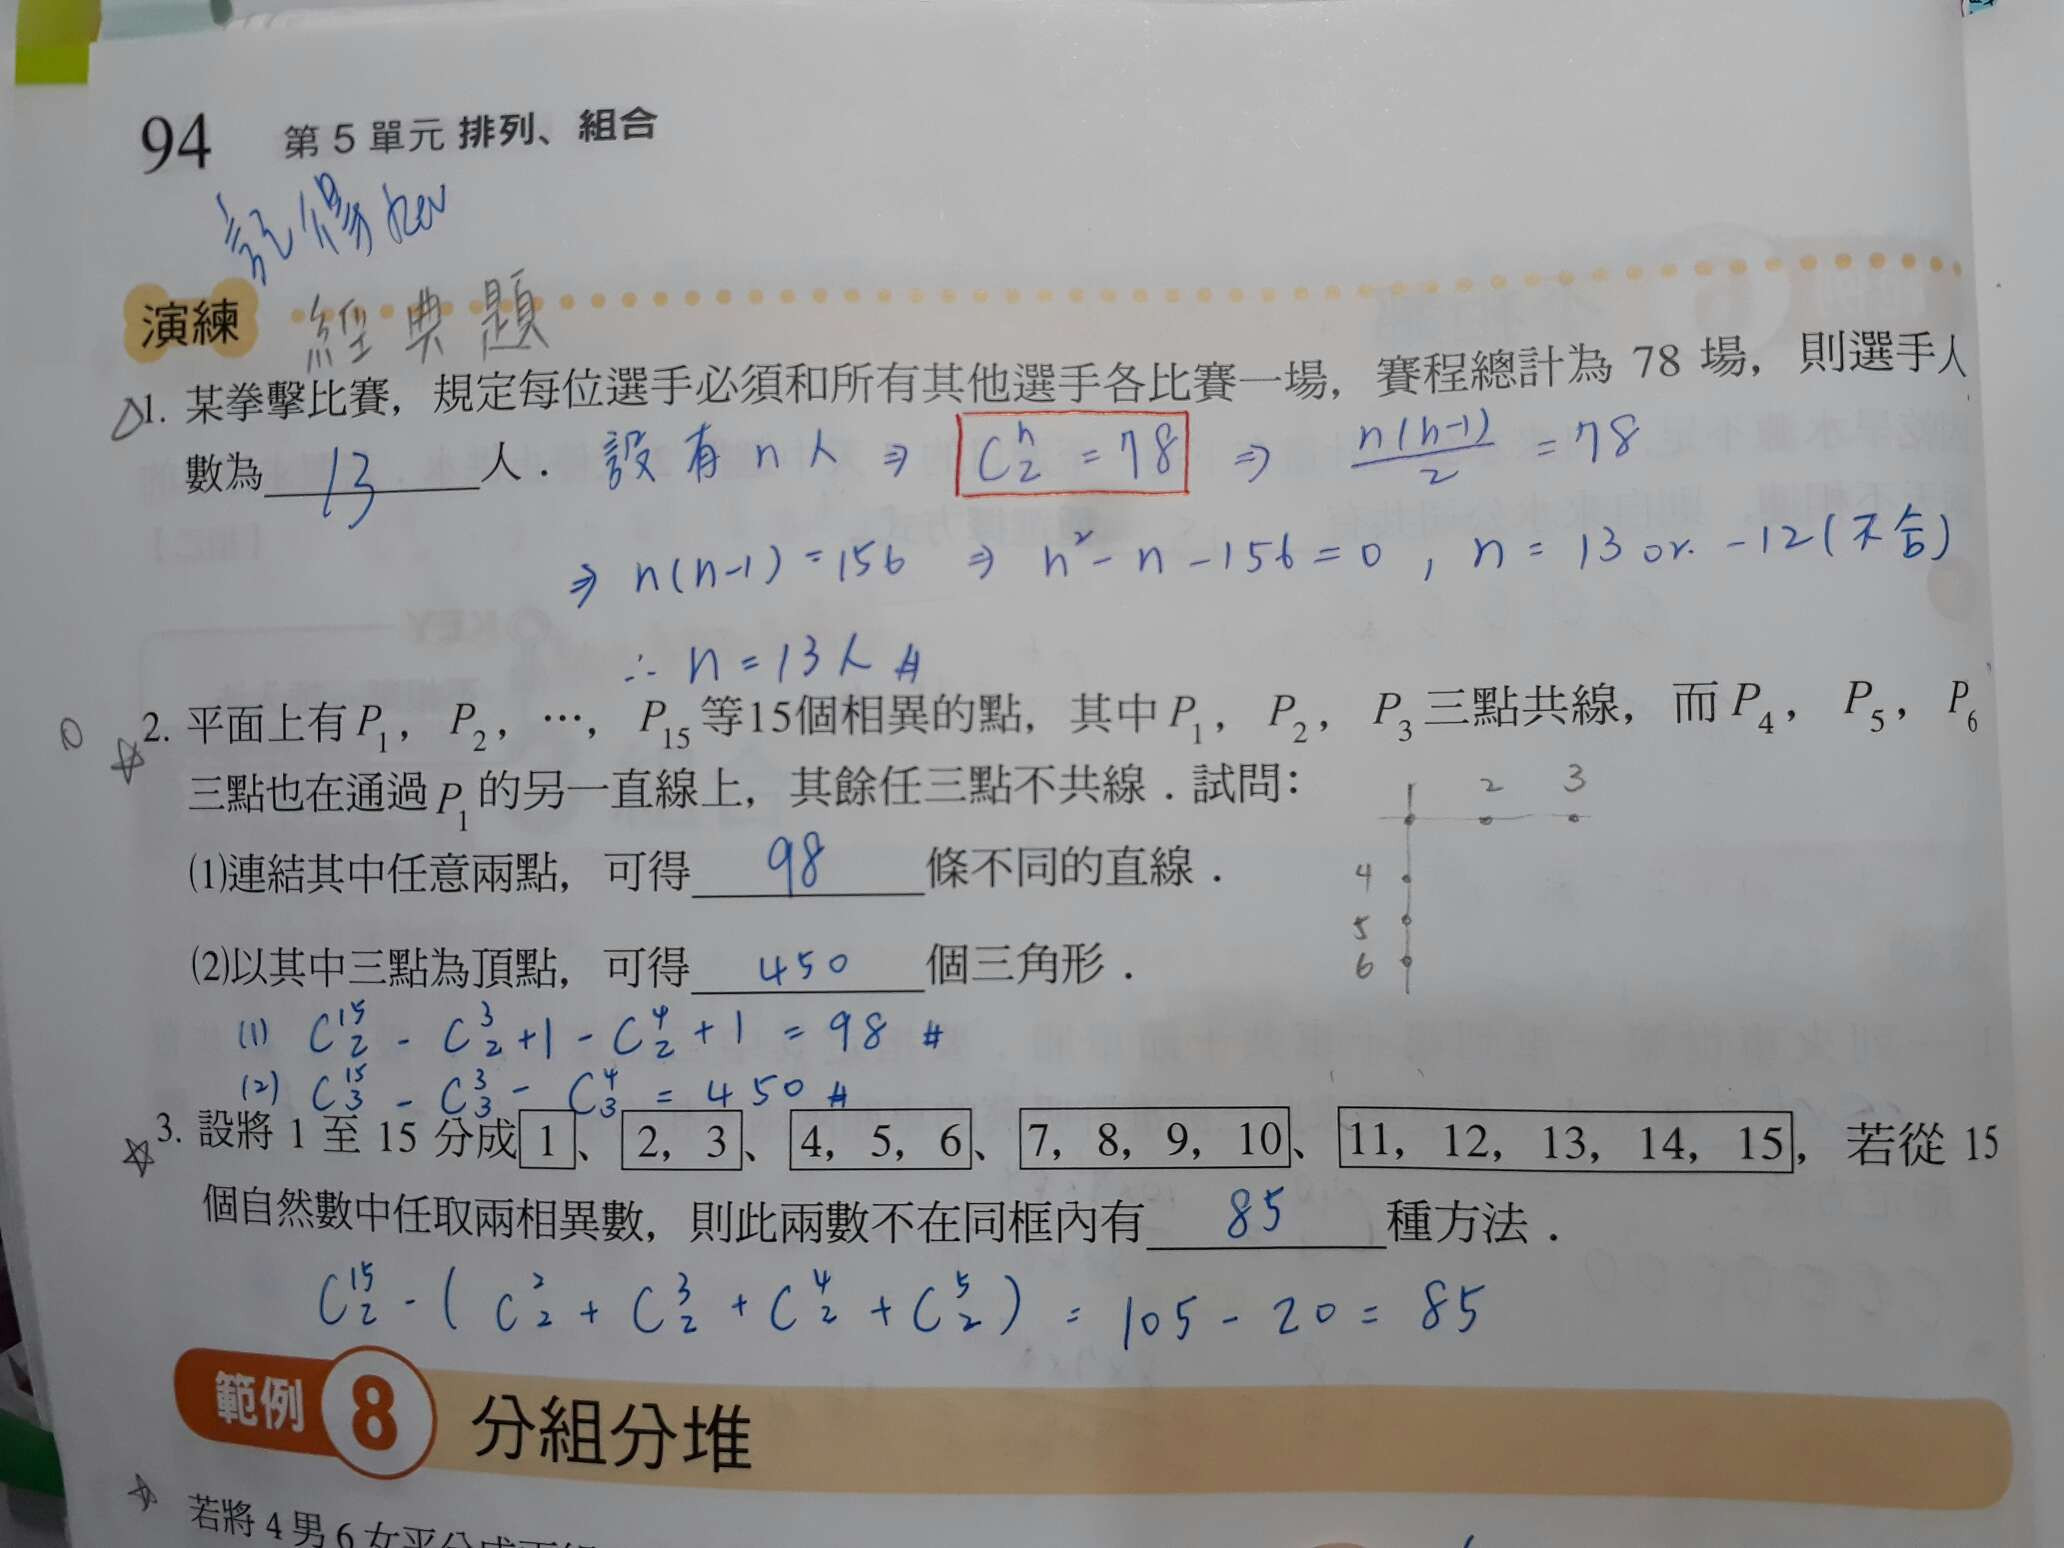 94 第5單元 排列、組合
演練 經典題
1. 某拳擊比賽，規定每位選手必須和所有其他選手各比賽一場，賽程總計為 78 場，則選手人
數為 13 人． 設有 n 人 ⇒ C₂ⁿ = 78 ⇒ n(n-1)/2 = 78
⇒ n(n-1) = 156 ⇒ n² - n - 156 = 0 , n = 13 or. -12 (不合)
∴ n = 13人 #
2. 平面上有 P₁，P₂，…，P₁₅ 等15個相異的點，其中 P₁，P₂，P₃ 三點共線，而 P₄，P₅，P₆
三點也在通過 P₁ 的另一直線上，其餘任三點不共線．試問：
2 3
⑴連結其中任意兩點，可得 98 條不同的直線．
4
5
⑵以其中三點為頂點，可得 450 個三角形．
6
(1) C₂¹⁵ - C₂³ + 1 - C₂⁴ + 1 = 98 #
(2) C₃¹⁵ - C₃³ - C₃⁴ = 450 #
3. 設將 1 至 15 分成 1、2，3、4，5，6、7，8，9，10、11，12，13，14，15，若從 15
個自然數中任取兩相異數，則此兩數不在同框內有 85 種方法．
C₂¹⁵ - ( C₂² + C₂³ + C₂⁴ + C₂⁵ ) = 105 - 20 = 85
範例 8 分組分堆
若將 4 男 6 女平分成兩組